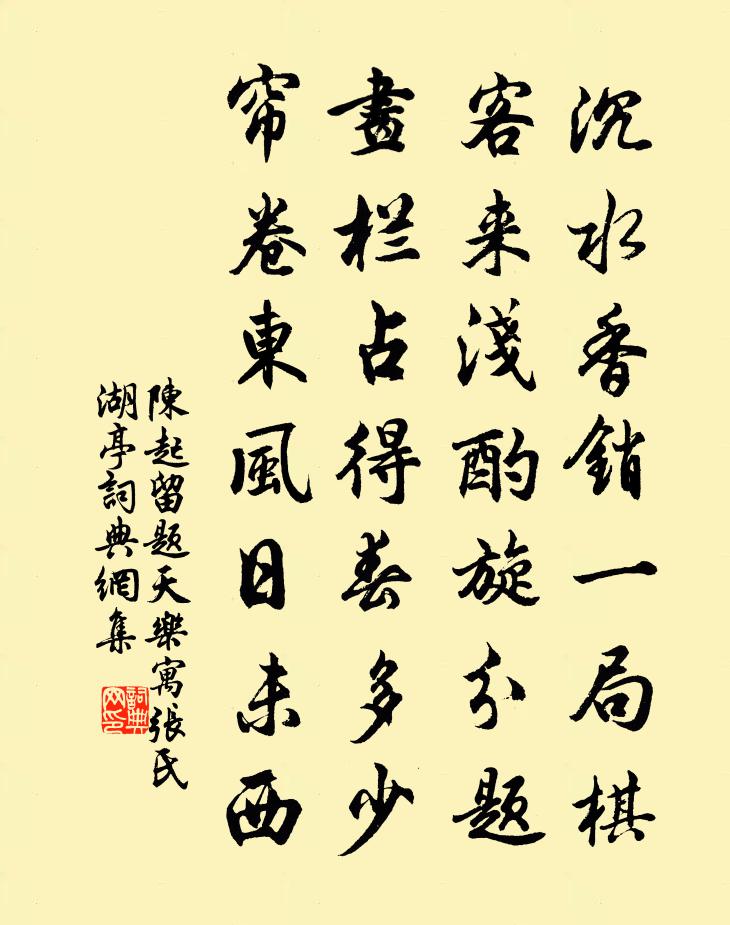 沉水香銷一局棋
客来淺酌旋分題
畫栏占得春多少
帘卷東風日未西
陳起留題天樂寓張氏
湖亭詞典網集
詞典网印